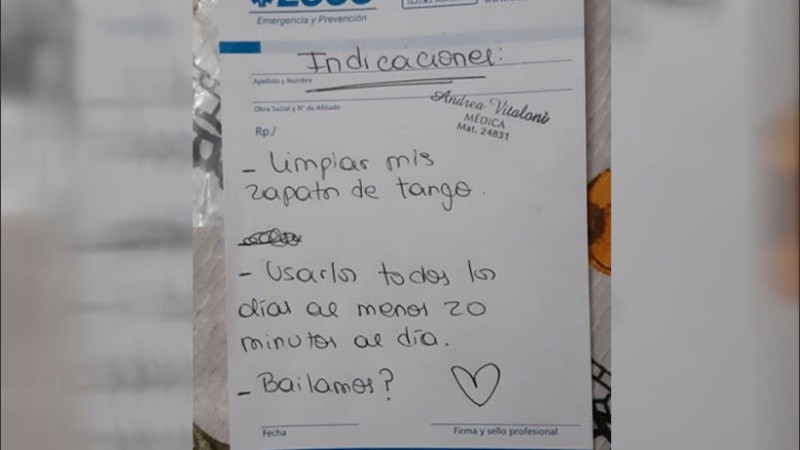 Emergencia y Prevención
Indicaciones:
Apellido y Nombre
Obra Social y N° de Afiliado
Andrea Vitaloni
MÉDICA
Mat. 24831
Rp./
- Limpiar mis
zapatos de tango.
- Usarlos todos los
días al menos 20
minutos al día.
- Bailamos?
Fecha
Firma y sello profesional